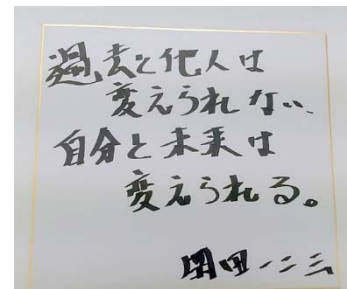 過去と他人は
変えられない、
自分と未来は
変えられる。